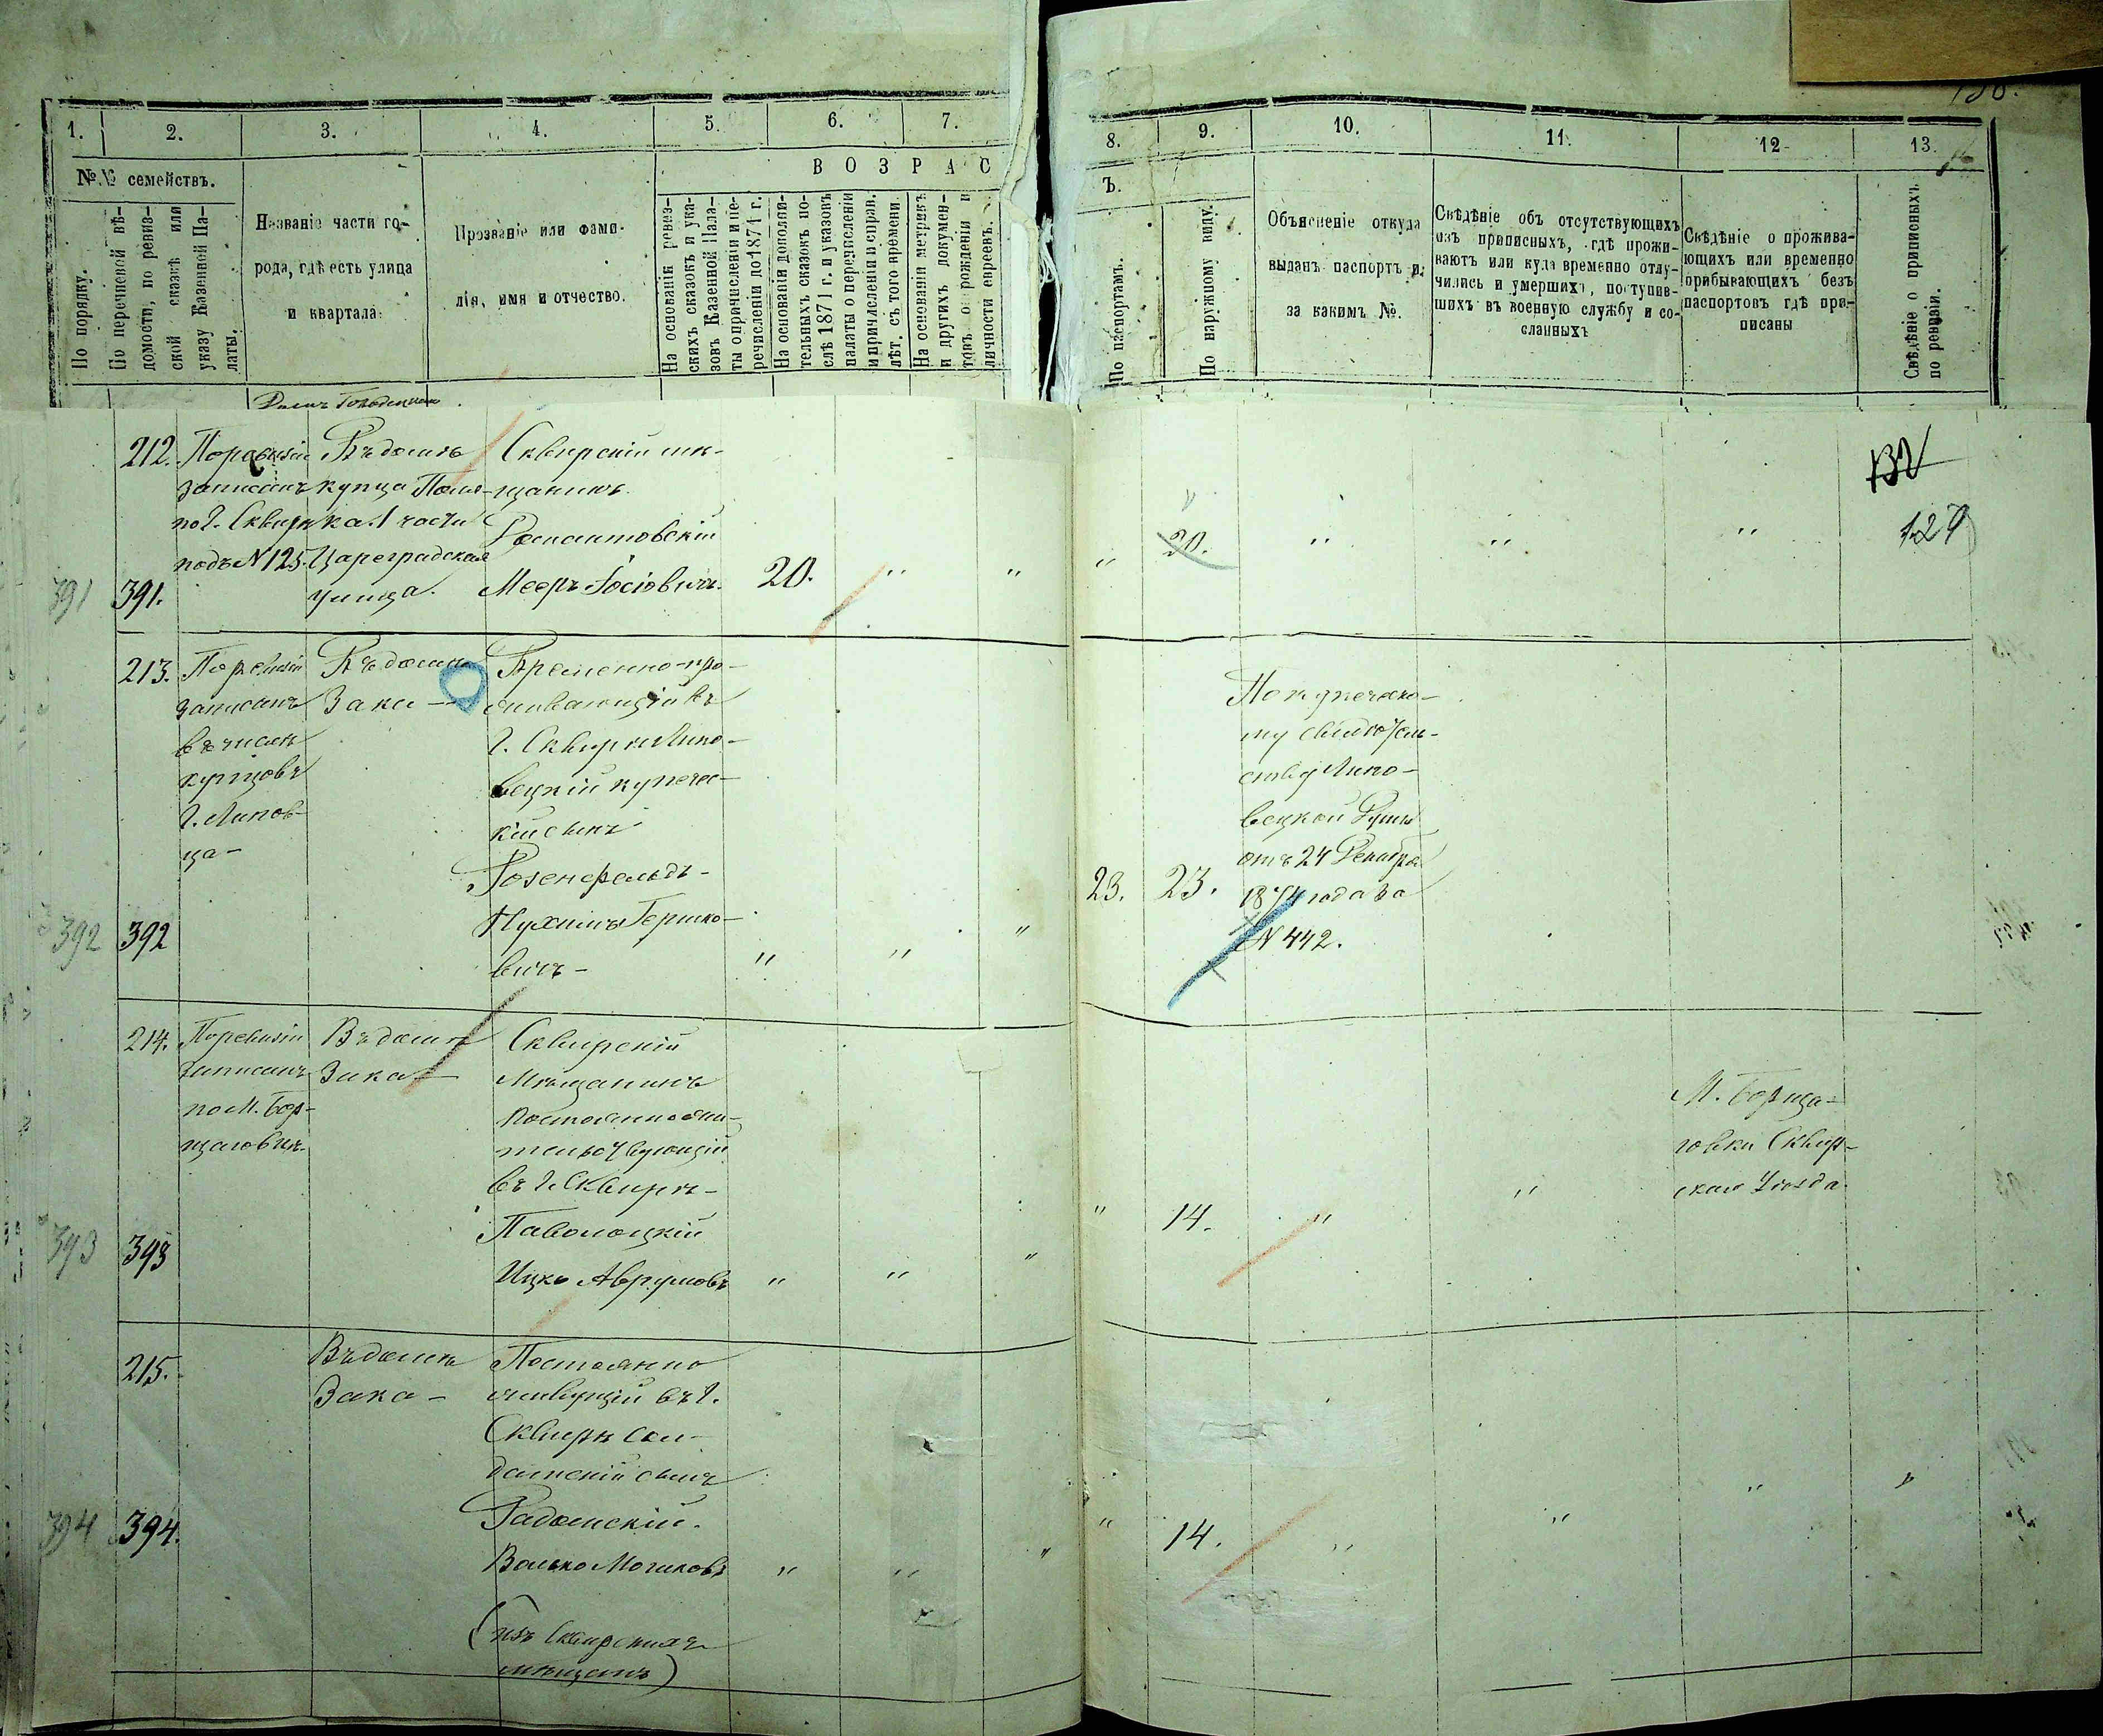 1. 2. 3. 4. 5. 6. 7.
8. 9. 10. 11. 12 13.
№.№ семействъ.
По порядку.
По перечневой вѣ-
домости, по ревиз-
ской сказкѣ или
указу Казенной Па-
латы.
Названіе части го-
рода, гдѣ есть улица
и квартала.
Прозваніе или фами-
лія, имя и отчество.
ВОЗРАС
Ъ.
На основаніи ревиз-
скихъ сказокъ и ука-
зовъ Казенной Пала-
ты о причисленіи и пе-
речисленіи до 1871 г.
На основаніи дополни-
тельныхъ сказокъ по-
слѣ 1871 г. и указовъ
палаты о перечисленіи
и причисленіи и справ.
лѣт. съ того времени.
На основаніи метрикъ
и другихъ докумен-
товъ о рожденіи и
личности евреевъ.
По паспортамъ.
По наружному виду.
Объясненіе откуда
выданъ паспортъ и
за какимъ №.
Свѣдѣніе объ отсутствующихъ
изъ приписныхъ, гдѣ прожи-
ваютъ или куда временно отлу-
чились и умершихъ, поступив-
шихъ въ военную службу и со-
сланныхъ
Свѣдѣніе о прожива-
ющихъ или временно
прибывающихъ безъ
паспортовъ гдѣ при-
писаны
Свѣдѣніе о приписныхъ
по ревизіи.
212.
По ревизіи
записанъ
по г. Сквирѣ
подъ N 125.
Въ домѣ
купца
ка. 1 части
Цареградская
улица.
Сквирскій мѣ-
щанинъ
Мееръ Іосіовичъ.
391 391.
20. " " " 20. " " "
132
129
213.
По ревизіи
записанъ
въ числѣ
купцовъ
г. Липов-
ца -
Въ домѣ
Зака -
Временно-про-
живающій въ
г. Сквирѣ Липо-
вецкій купечес-
кій сынъ
Розенфельдъ -
Нухимъ Гершко-
вичъ -
392 392
" " " 23. 23.
По купеческо-
му свидѣтель-
ству Липо-
вецкой Думы
отъ 24 Декабря
1874 года за
N 442.
214.
По ревизіи
записанъ
по М. Бор-
щаговкѣ.
Въ домѣ
Зака -
Сквирскій
Мѣщанинъ
постоянно жи-
тельствующій
въ г. Сквирѣ -
Паволоцкій
Ицко Аврумовъ
393 393
" " " " 14. " "
М. Борща-
говки Сквир-
скаго Уѣзда.
215.
Въ домѣ
Зака -
Постоянно
живущій въ г.
Сквирѣ Сол-
датскій сынъ
Радомскій.
Волько Мошковъ
(изъ Сквирскихъ
мѣщанъ)
394 394.
" " " " 14. " " " "